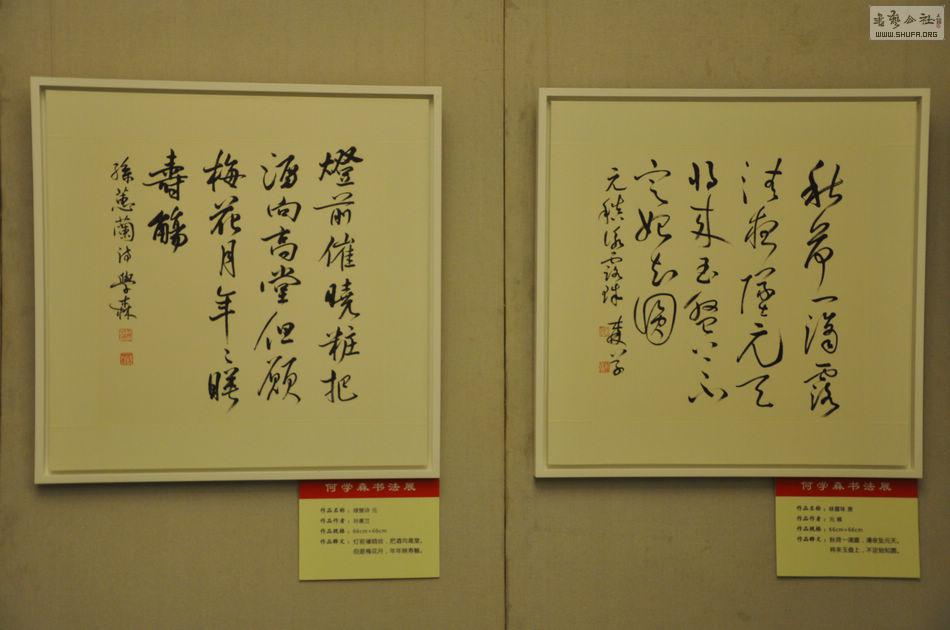 書藝公社
WWW.SHUFA.ORG
燈前催曉粧把
酒向高堂但願
梅花月年〻映
壽觴
孫蕙蘭詩學森
何学森书法展
作品名称：绿窗诗 元
作品作者：孙蕙兰
作品规格：66cm×66cm
作品释文：灯前催晓妆，把酒向高堂。
但愿梅花月，年年映寿觞。
秋荷一滴露
清夜墜元天
将来玉盤上不
定始知圓
元稹詠露珠
何学森书法展
作品名称：咏露珠 唐
作品作者：元 稹
作品规格：66cm×66cm
作品释文：秋荷一滴露，清夜坠元天。
将来玉盘上，不定始知圆。